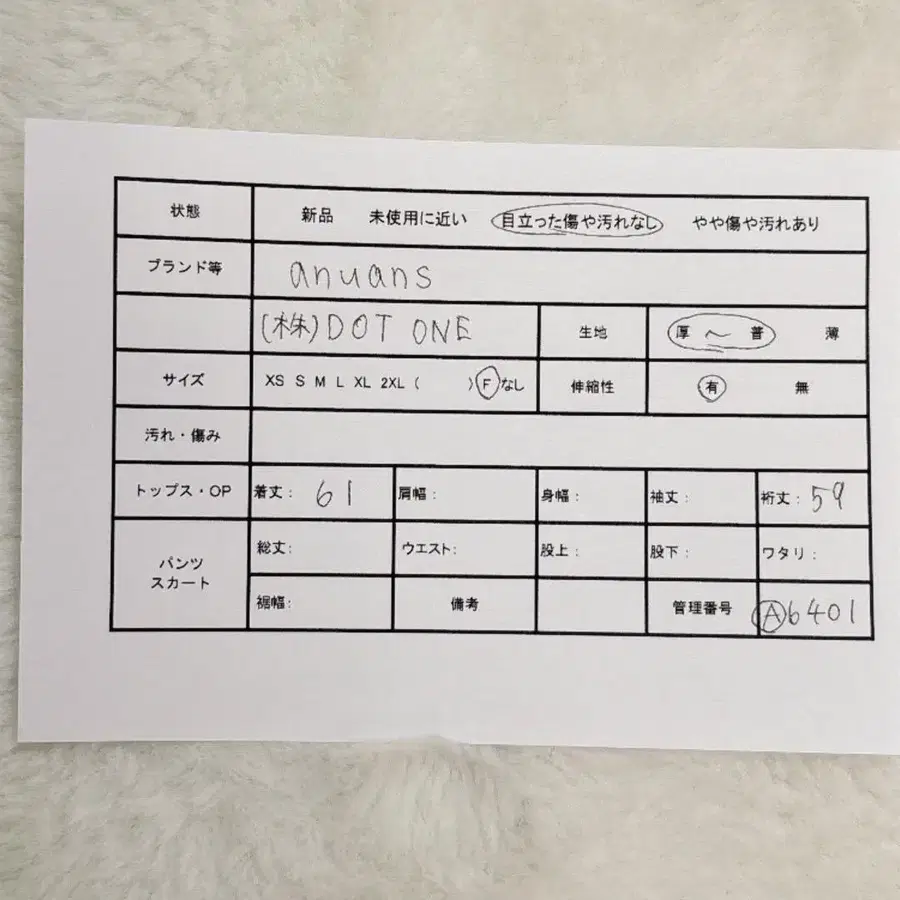 状態 新品 未使用に近い 目立った傷や汚れなし やや傷や汚れあり
ブランド等 anuans
(株)DOT ONE 生地 厚 〜 普 薄
サイズ XS S M L XL 2XL ( ) F なし 伸縮性 有 無
汚れ・傷み
トップス・OP 着丈: 61 肩幅: 身幅: 袖丈: 裄丈: 59
パンツ
スカート
総丈: ウエスト: 股上: 股下: ワタリ:
裾幅: 備考 管理番号 Ⓐ6401